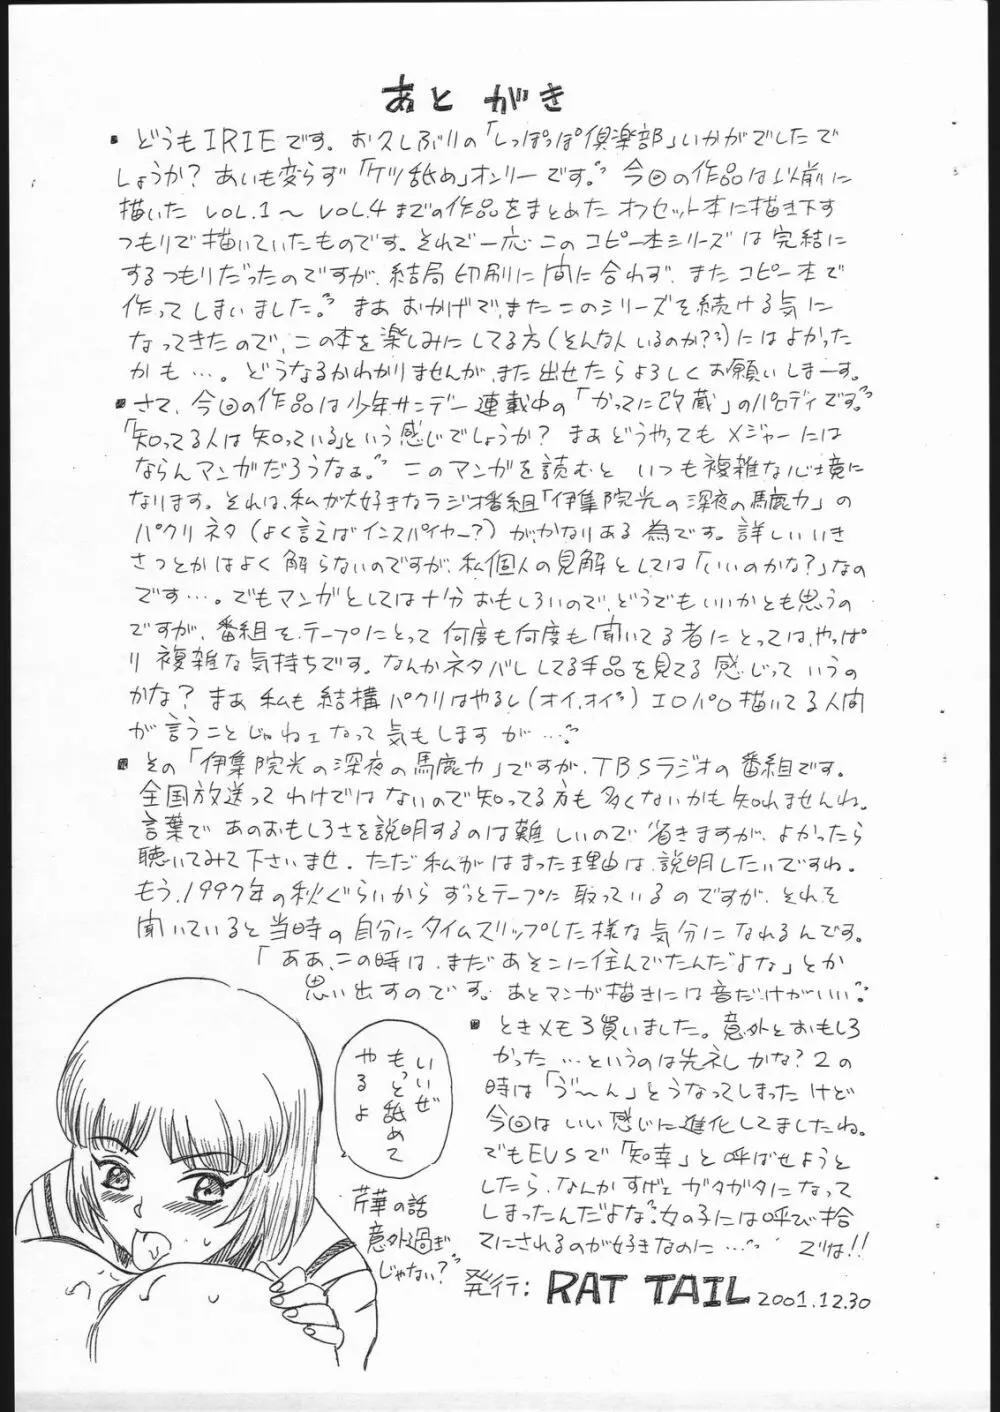 あとがき
・どうもIRIEです。お久しぶりの「しっぽっぽ倶楽部」いかがでしたで
しょうか？あいも変らず「ケツ舐め」オンリーです。今回の作品は以前に
描いた VOL.1〜VOL.4までの作品をまとめた オフセット本に描き下す
つもりで描いていたものです。それで一応このコピー本シリーズは完結に
するつもりだったのですが、結局印刷に間に合わず、またコピー本で
作ってしまいました。まあおかげで、またこのシリーズを続ける気に
なってきたので、この本を楽しみにしてる方（そんな人いるのか？）にはよかった
かも…。どうなるかわかりませんが、また出せたらよろしくお願いしまーす。
・さて、今回の作品は少年サンデー連載中の「かってに改蔵」のパロディです。
「知ってる人は知っている」という感じでしょうか？まぁどうやってもメジャーには
ならんマンガだろうなぁ。このマンガを読むと いつも複雑な心境に
なります。それは、私が大好きなラジオ番組「伊集院光の深夜の馬鹿力」の
パクリネタ（よく言えばインスパイヤー？）が、かなりある為です。詳しいいき
さつとかはよく解らないのですが、私個人の見解としては「いいのかな？」なの
です…。でもマンガとしては十分おもしろいので、どうでもいいかとも思うの
ですが、番組を、テープにとって何度も何度も聞いてる者にとっては、やっぱ
り複雑な気持ちです。なんかネタバレしてる手品を見てる感じっていうの
かな？まぁ私も結構パクリはやるし（オイ、オイ）エロパロ描いてる人間
が言うことじゃねェなって気もしますが…。
・その「伊集院光の深夜の馬鹿力」ですが、TBSラジオの番組です。
全国放送ってわけではないので知ってる方も多くないかも知れませんね。
言葉であのおもしろさを説明するのは難しいので省きますが、よかったら
聴いてみて下さいませ。ただ私がはまった理由は、説明したいですね。
もう、1997年の秋ぐらいからずっとテープに取っているのですが、それを
聞いていると当時の自分にタイムスリップした様な気分になれるんです。
「ああ、この時は、まだあそこに住んでたんだよな」とか
思い出すのです。あとマンガ描きには音だけがいい。
・ときメモ3買いました。意外とおもしろ
かった…というのは失礼かな？2の
時は「う゛〜ん」とうなってしまったけど
今回はいい感じに進化してましたね。
でもEVSで「知幸」と呼ばせようと
したら、なんかすげェガタガタになって
しまったんだよな。女の子には呼び捨
てにされるのが好きなのに…。 では!!
いいぜ
もっと舐めて
やるよ
芹華の話
意外過ぎ
じゃない？
発行：RAT TAIL 2001.12.30